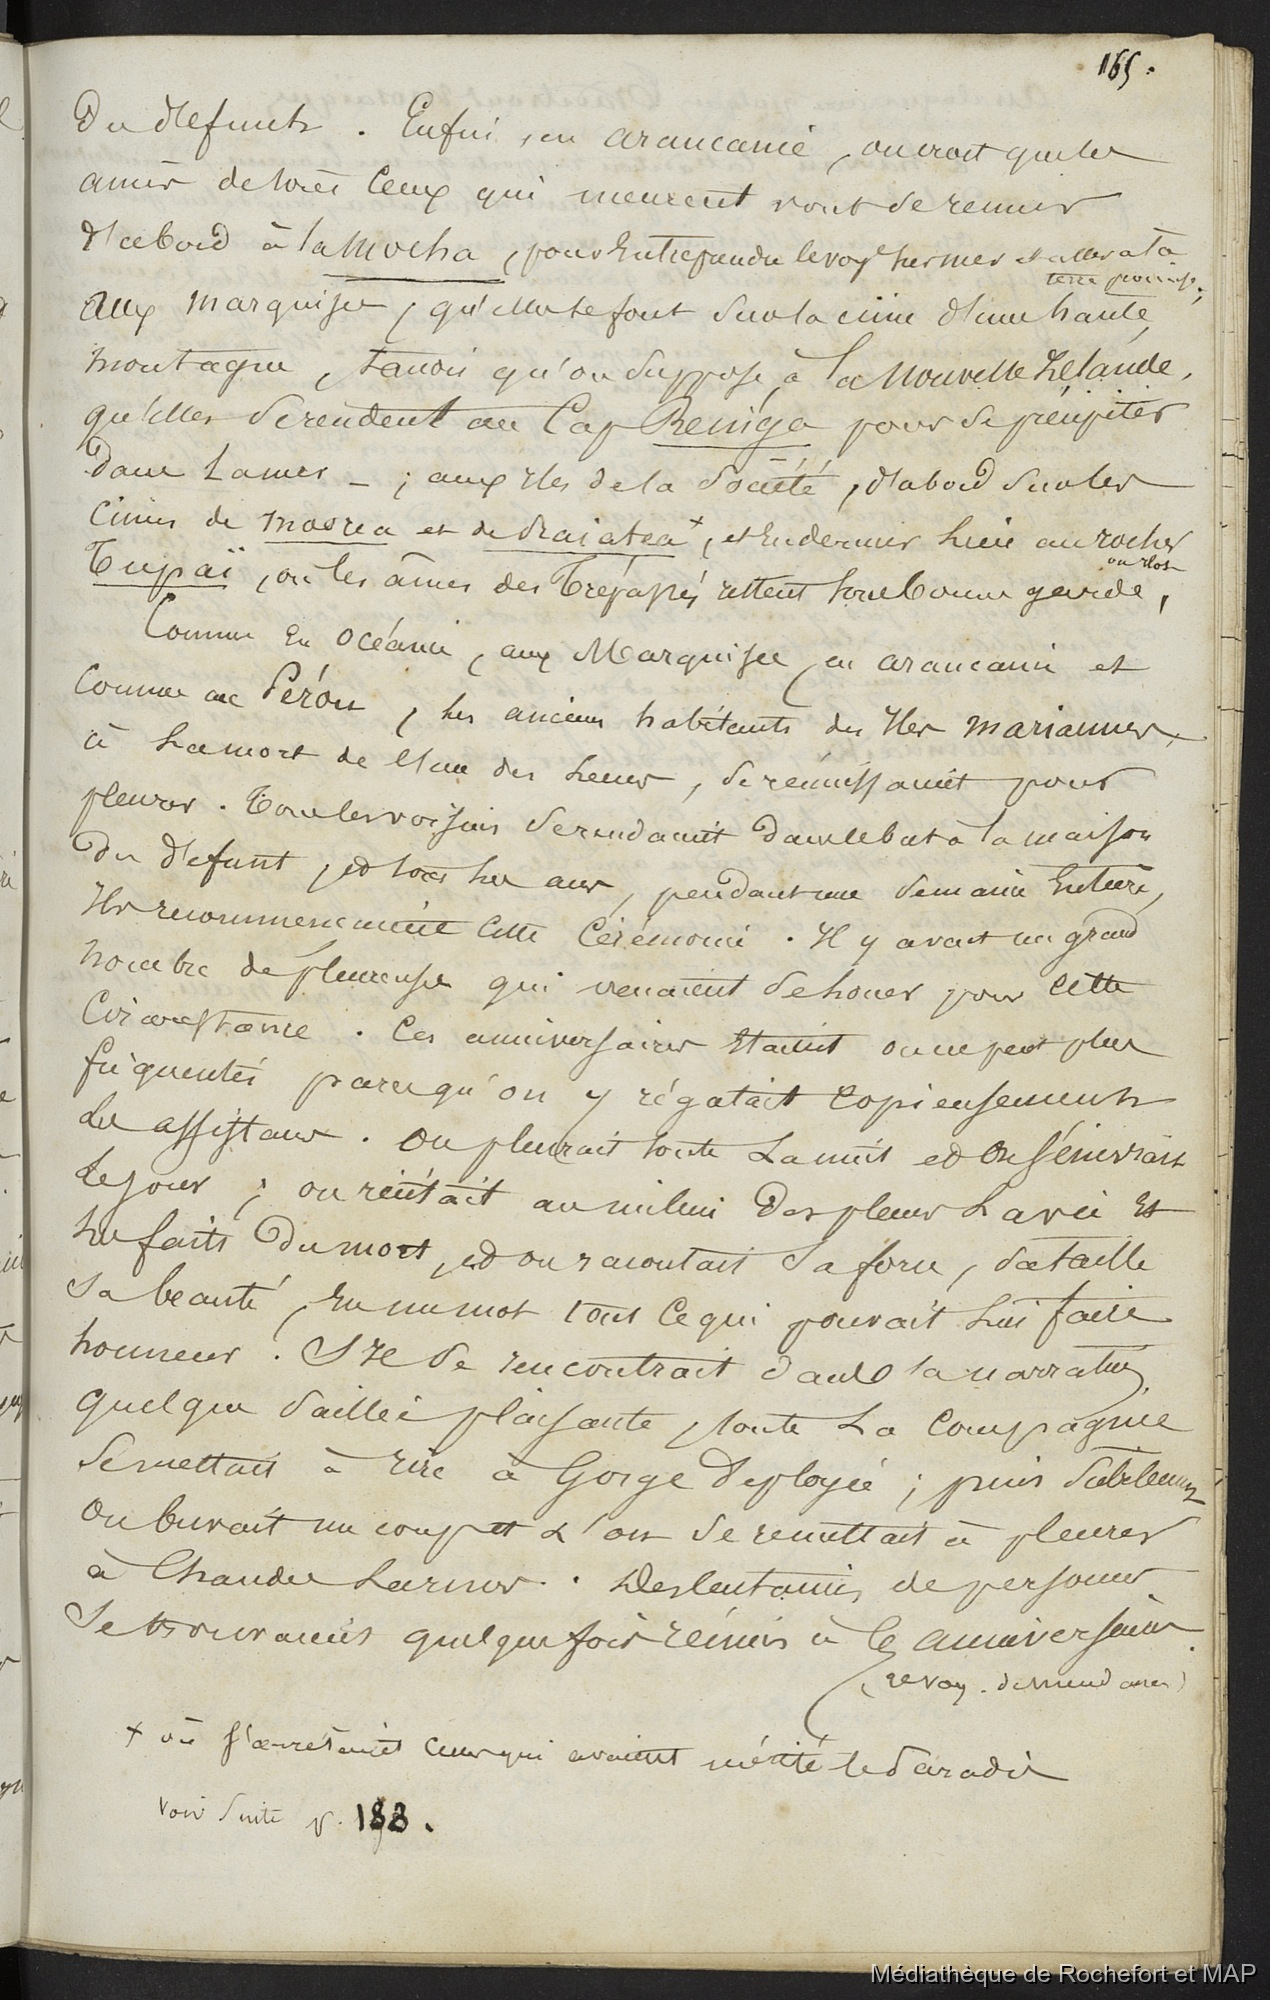 165.
Du défunts. Enfin, en araucanie, on croit que les
âmes de tous ceux qui meurent vont se reunir
d'abord à la Mocha, pour entreprendre le voy. des mers et aller à la
terre promise;
aux marquises, qu'elles le font sur la cime d'une haute
montagne, tandis qu'on suppose, à la Nouvelle Zélande,
qu'elles se rendent au Cap Reinga pour se précipiter
dans la mer _ ; aux Iles de la Société, d'abord sur les
cimes de Moorea et de Raiatea +, et en dernier lieu au rocher
ou ilot
Tupaï, où les âmes des trépassés restent sous bonne garde,
Comme en Océanie, aux Marquises, en araucanie et
Comme au Pérou, les anciens habitants des Iles mariannes,
à la mort de l'un des leurs, se réunissaient pour
pleurer. Tous les voisins se rendaient dans le but à la maison
du défunt, et tous les ans, pendant une semaine entière,
Ils recommençaient cette cérémonie. Il y avait un grand
nombre de pleureuses qui venaient se louer pour cette
Circonstance. Ces anniversaires étaient on ne peut plus
fréquentés parce qu'on y régalait copieusement
les assistans. On pleurait toute la nuit et on s'énivrait
le jour; on récitait au milieu des pleurs la vie et
les faits du mort, et on racontait sa force, sa taille
sa beauté, en un mot tout ce qui pouvait lui faire
honneur. S'il se rencontrait dans la narration
quelque saillie plaisante, toute la compagnie
se mettait à rire à gorge déployée; puis subitement
on buvait un coup et l'on se remettait à pleurer
à chaudes larmes. Des centaines de personnes
se trouvaient quelquefois réunies à ces anniversaires.
+ où s'arrêtaient ceux qui avaient mérité le Paradis
voir suite p. 188.
Médiathèque de Rochefort et MAP